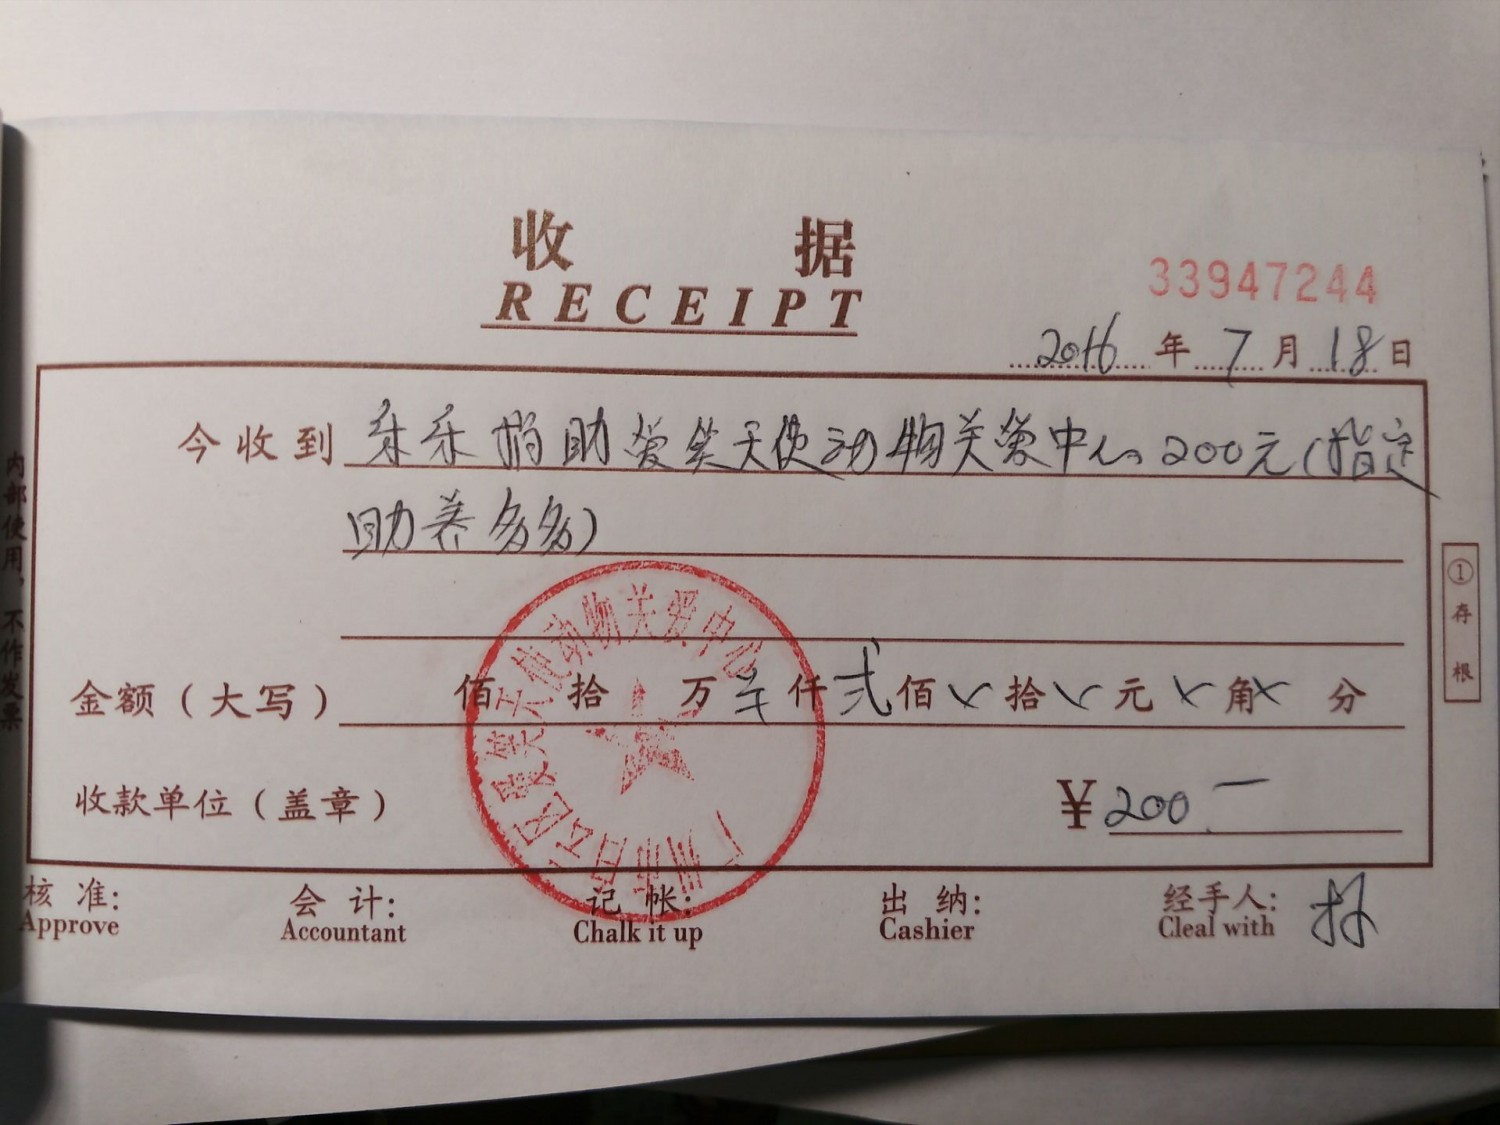 收据
RECEIPT
33947244
2016年7月18日
今收到 乐乐捐助爱笑天使动物关爱中心200元(指定
助养多多)
金额(大写) 佰 拾 万 仟 弍 佰 拾 元 角 分
收款单位(盖章) ¥200
广州市白云区爱笑天使动物关爱中心
核准: 会计: 记帐: 出纳: 经手人: 林
Approve Accountant Chalk it up Cashier Cleal with
内部使用,不作发票
①存根